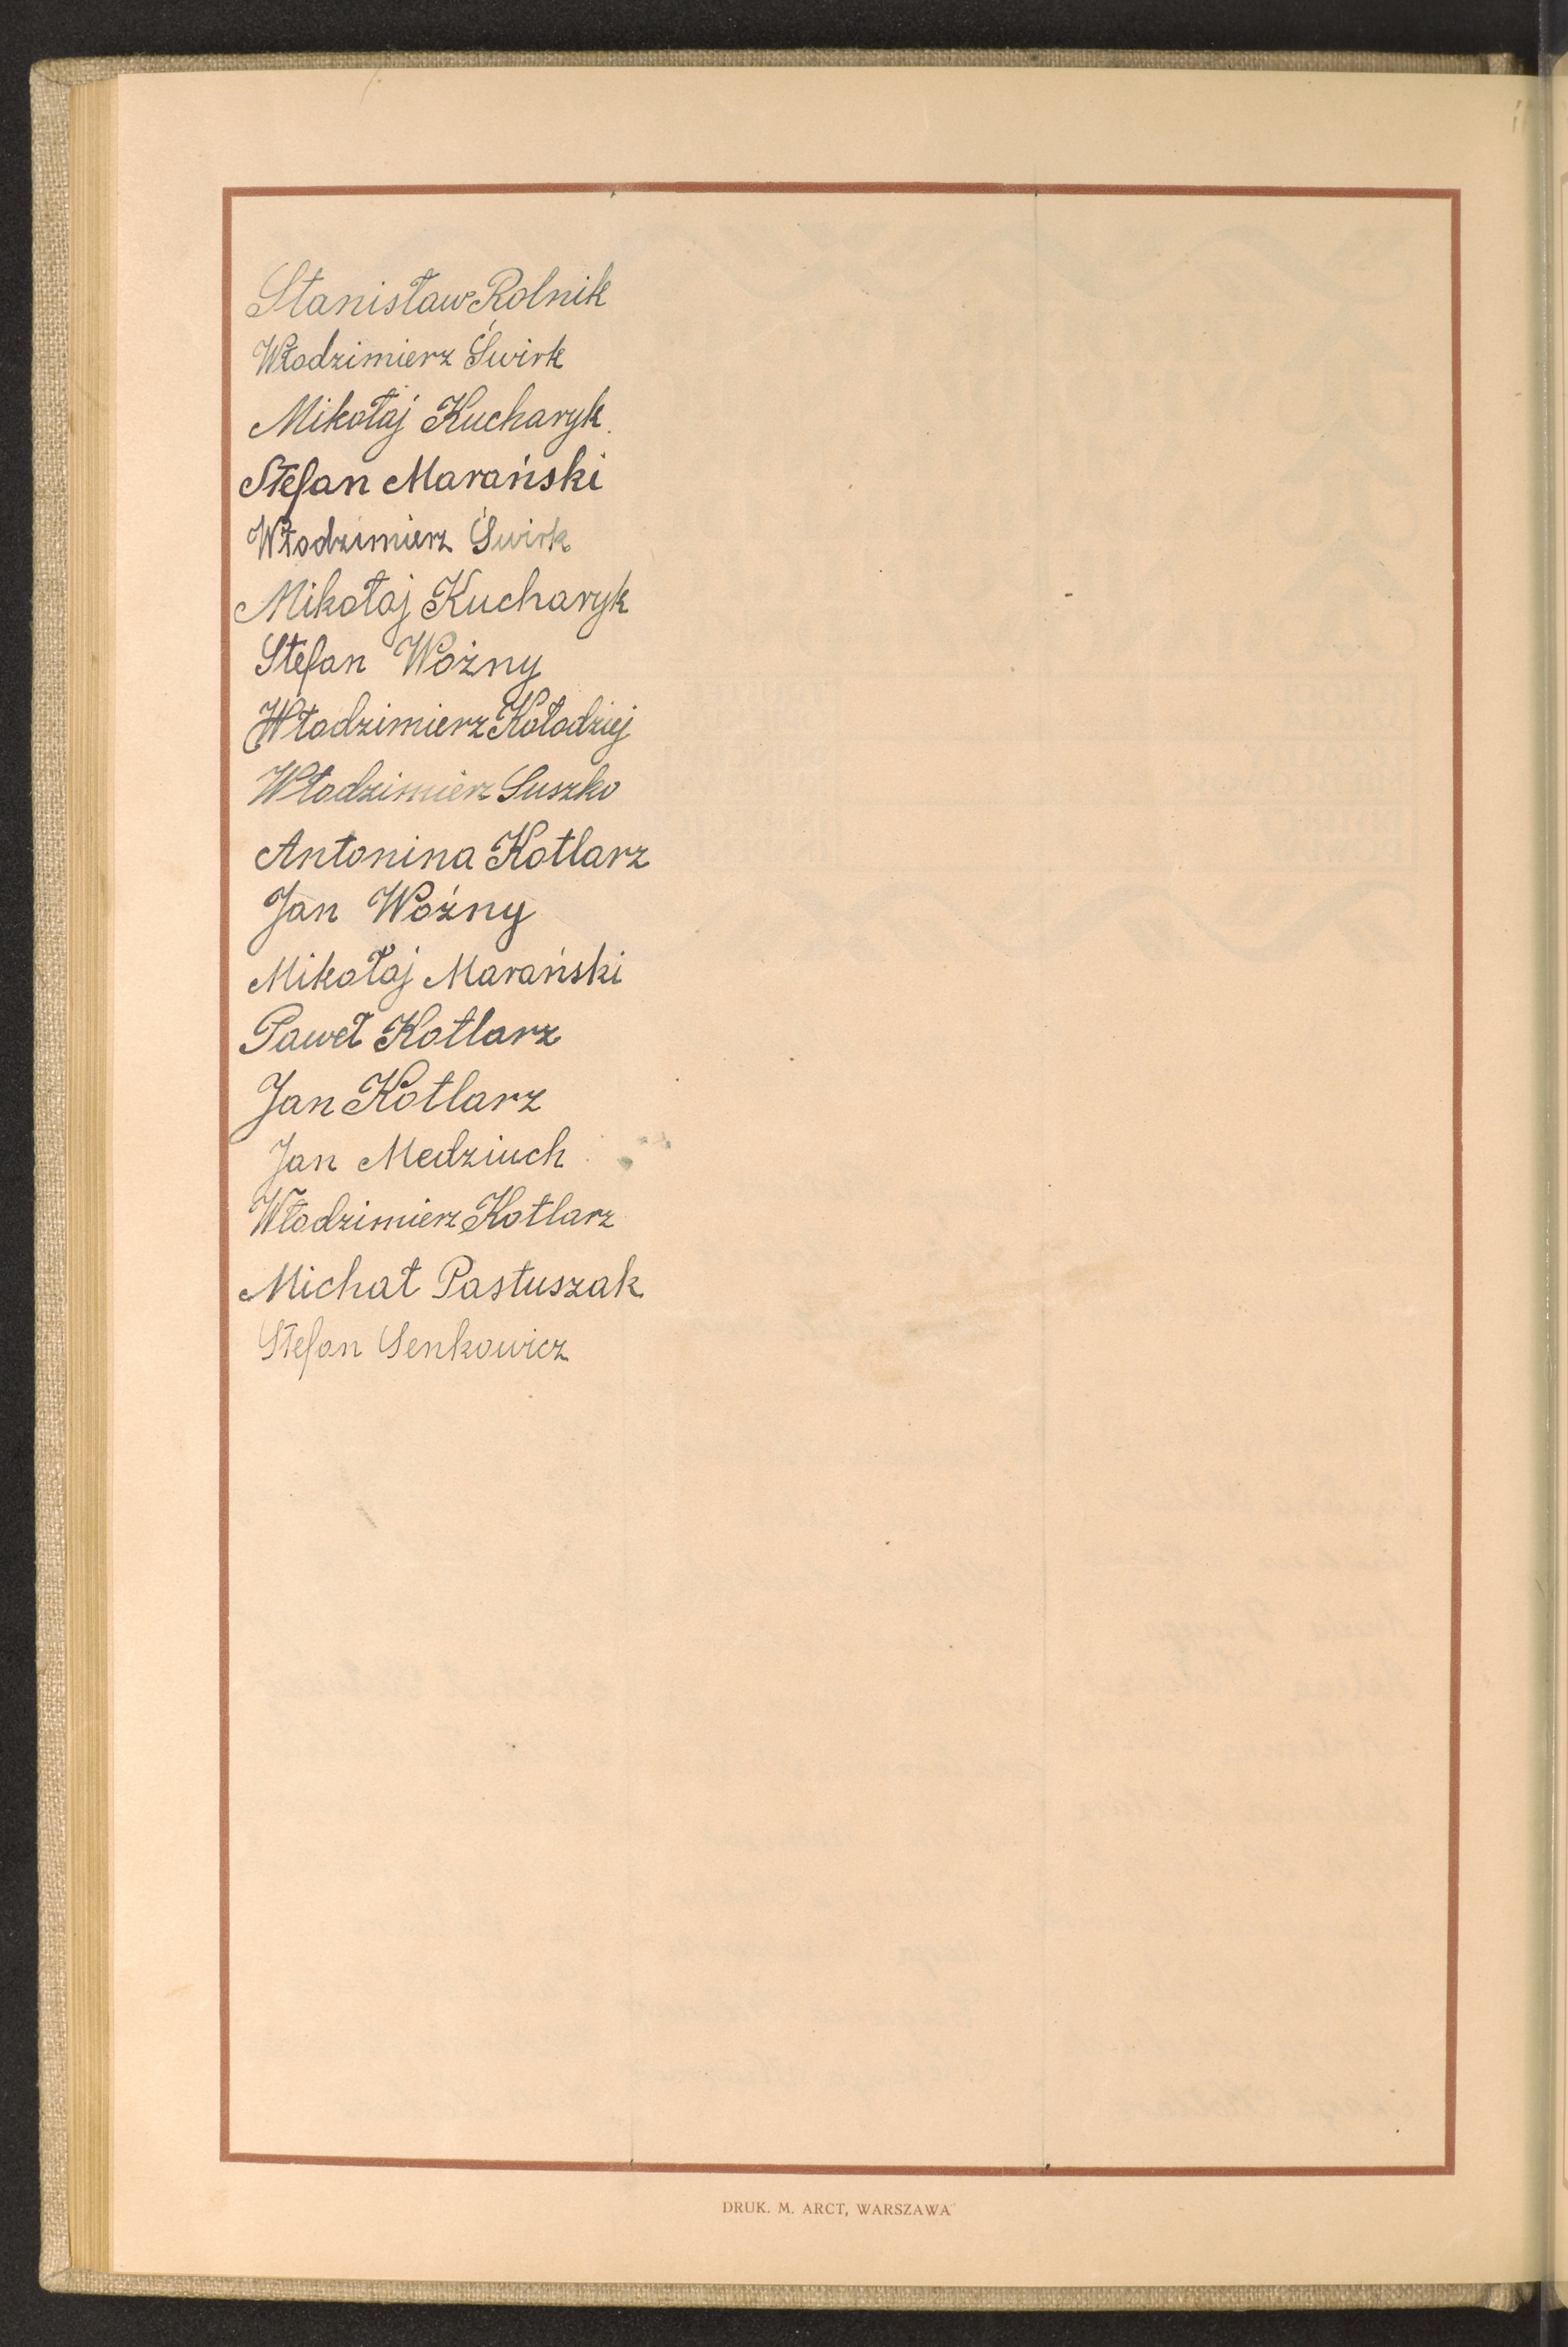 Stanisław Rolnik
Włodzimierz Świrk
Mikołaj Kucharyk
Stefan Marański
Włodzimierz Świrk
Mikołaj Kucharyk
Stefan Woźny
Włodzimierz Kołodziej
Włodzimierz Suszko
Antonina Kotlarz
Jan Woźny
Mikołaj Marański
Paweł Kotlarz
Jan Kotlarz
Jan Medziuch
Włodzimierz Kotlarz
Michał Pastuszak
Stefan Senkowicz
DRUK. M. ARCT, WARSZAWA